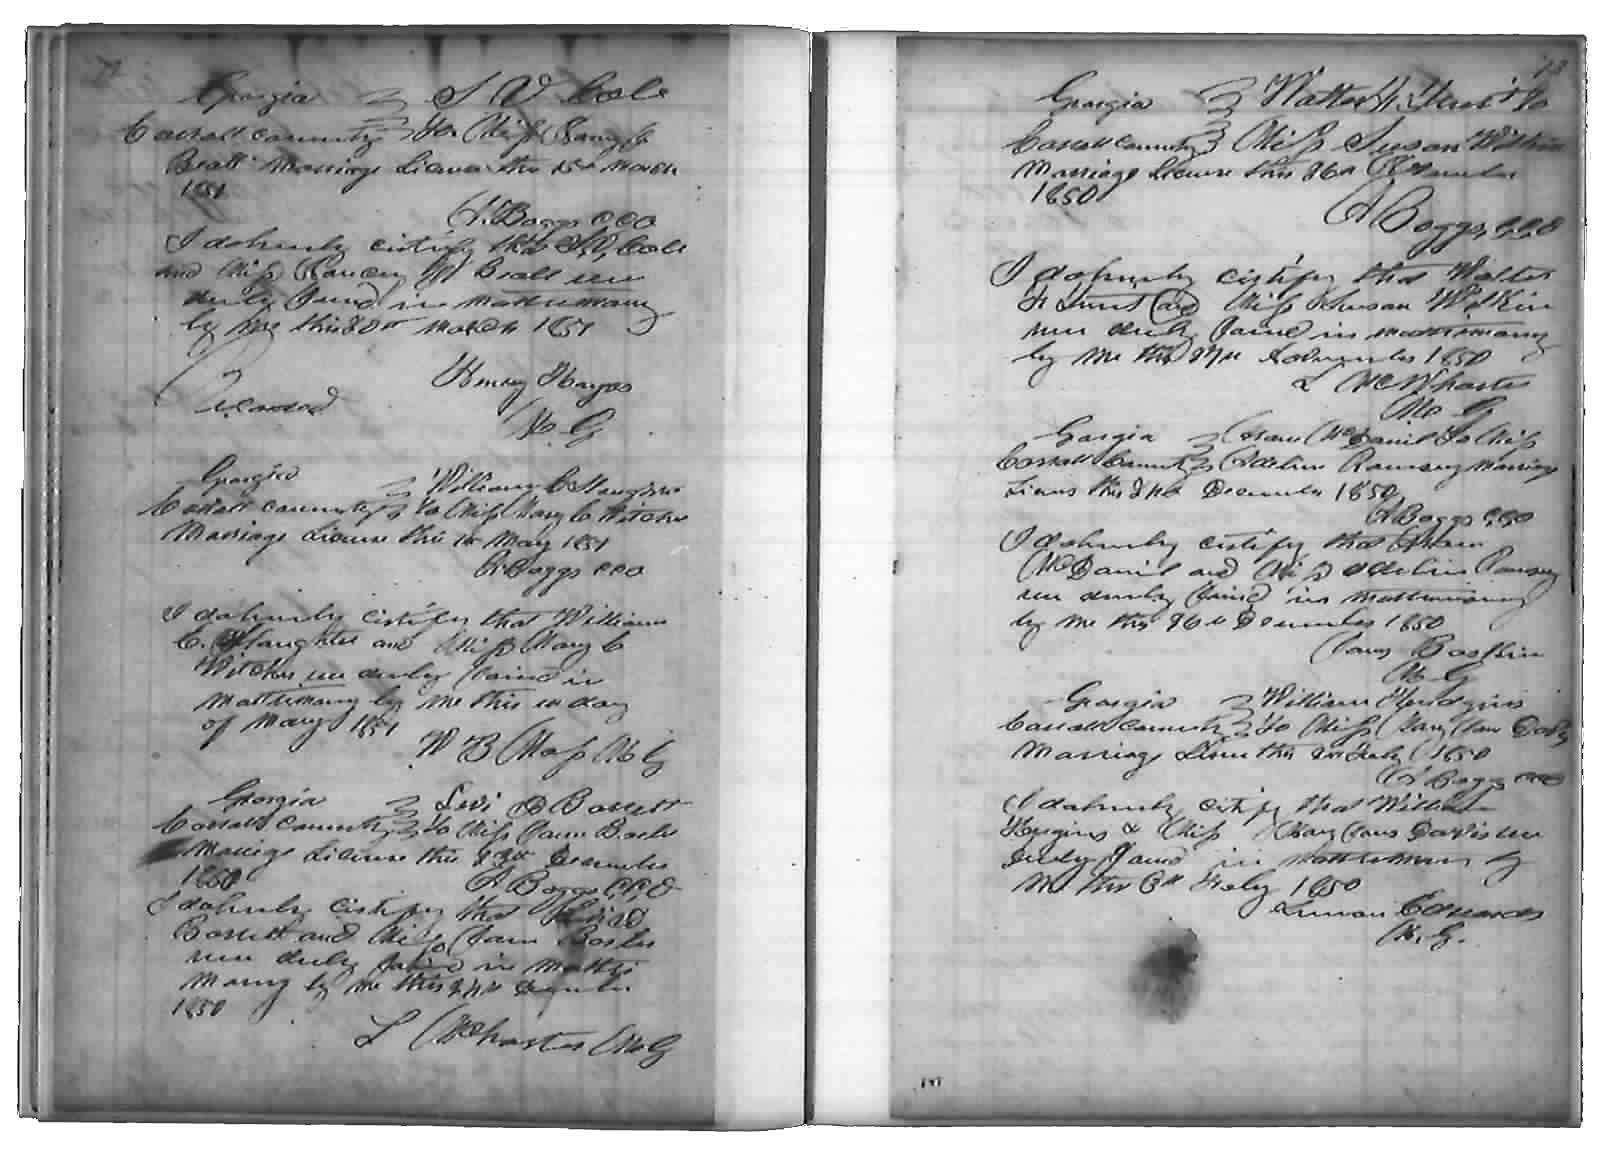 Georgia S V Cole
Carroll County To Miss Nancy
Beall Marriage License this 15th March
1851
A. Boggs C C O
I do hereby certify that S, V, Cole
and Miss Nancy M Beall were
duly joined in matrimony
by me this 30th March 1851
Henry Hayes
M. G
Recorded
Georgia William C Slaughter
Carroll County To Miss Mary C Witcher
Marriage License this 1st May 1851
A Boggs C C O
I do hereby certify that William
C. Slaughter and Miss Mary C
Witcher were duly joined in
matrimony by me this day
of May 1851
W B Moss M G
Georgia Levi D Barrett
Carroll County To Miss Jane
Marriage License this December
1850 A Boggs C, C, O
I do hereby certify that Levi D
Barrett and Miss Jane
were duly joined in matri
mony by me this December
1850
L McWhorter M G
13
Georgia Walter H. Hunt To
Carroll County Miss Susan
Marriage License this 26th November
1850
A Boggs, C, C, O
I do hereby certify that Walter
H Hunt and Miss Susan
were duly joined in matrimony
by me this 27th November 1850
L McWhorter
M G
Georgia McDaniel To Miss
Carroll County Adeline Ramsey Marriage
License this 2nd December 1850
A Boggs C, C, O
I do hereby certify that
McDaniel and Miss Adeline Ramsey
were duly joined in matrimony
by me this December 1850
James Baskin
M. G
Georgia William Hudgins
Carroll County To Miss Mary Jane
Marriage License this July 1850
A Boggs C C O
I do hereby certify that William
Hugins & Miss Mary Jane were
duly joined in matrimony by
me this July 1850
Edwards
M. G.